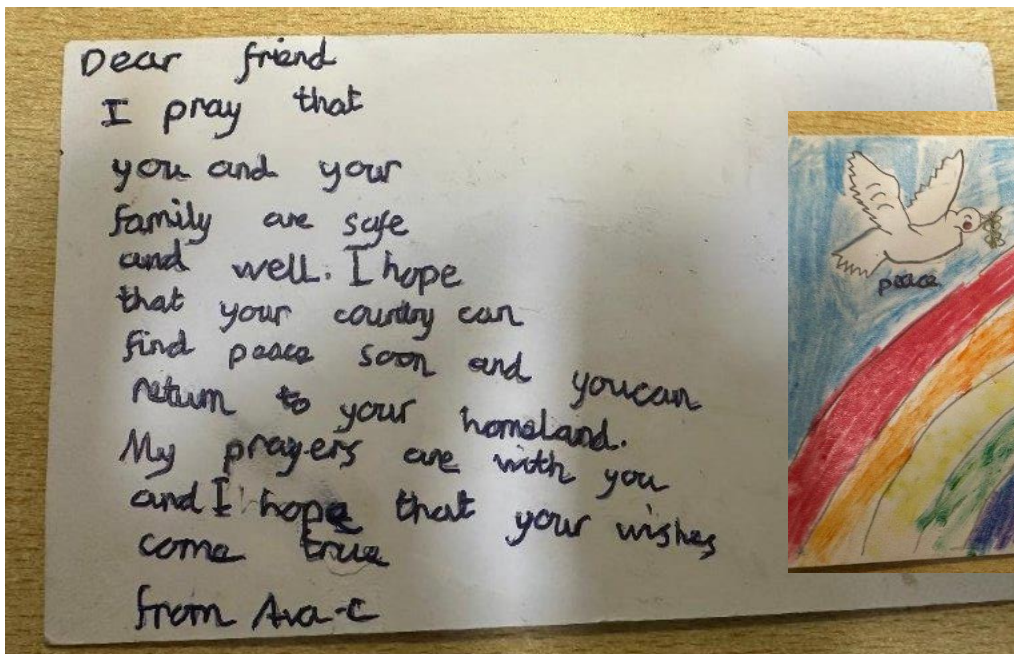 Dear friend
I pray that
you and your
family are safe
and well. I hope
that your country can
find peace soon and youcan
return to your homeland.
My prayers are with you
and I hope that your wishes
come true
from Ava-C
peace